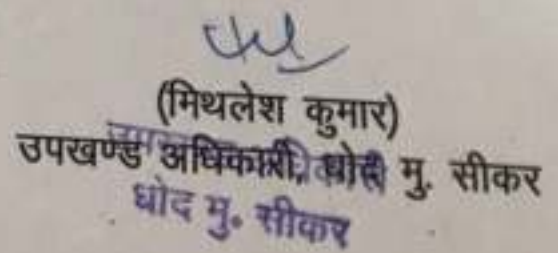 (मिथलेश कुमार)
उपखण्ड अधिकारी, धोद मु. सीकर
धोद मु. सीकर